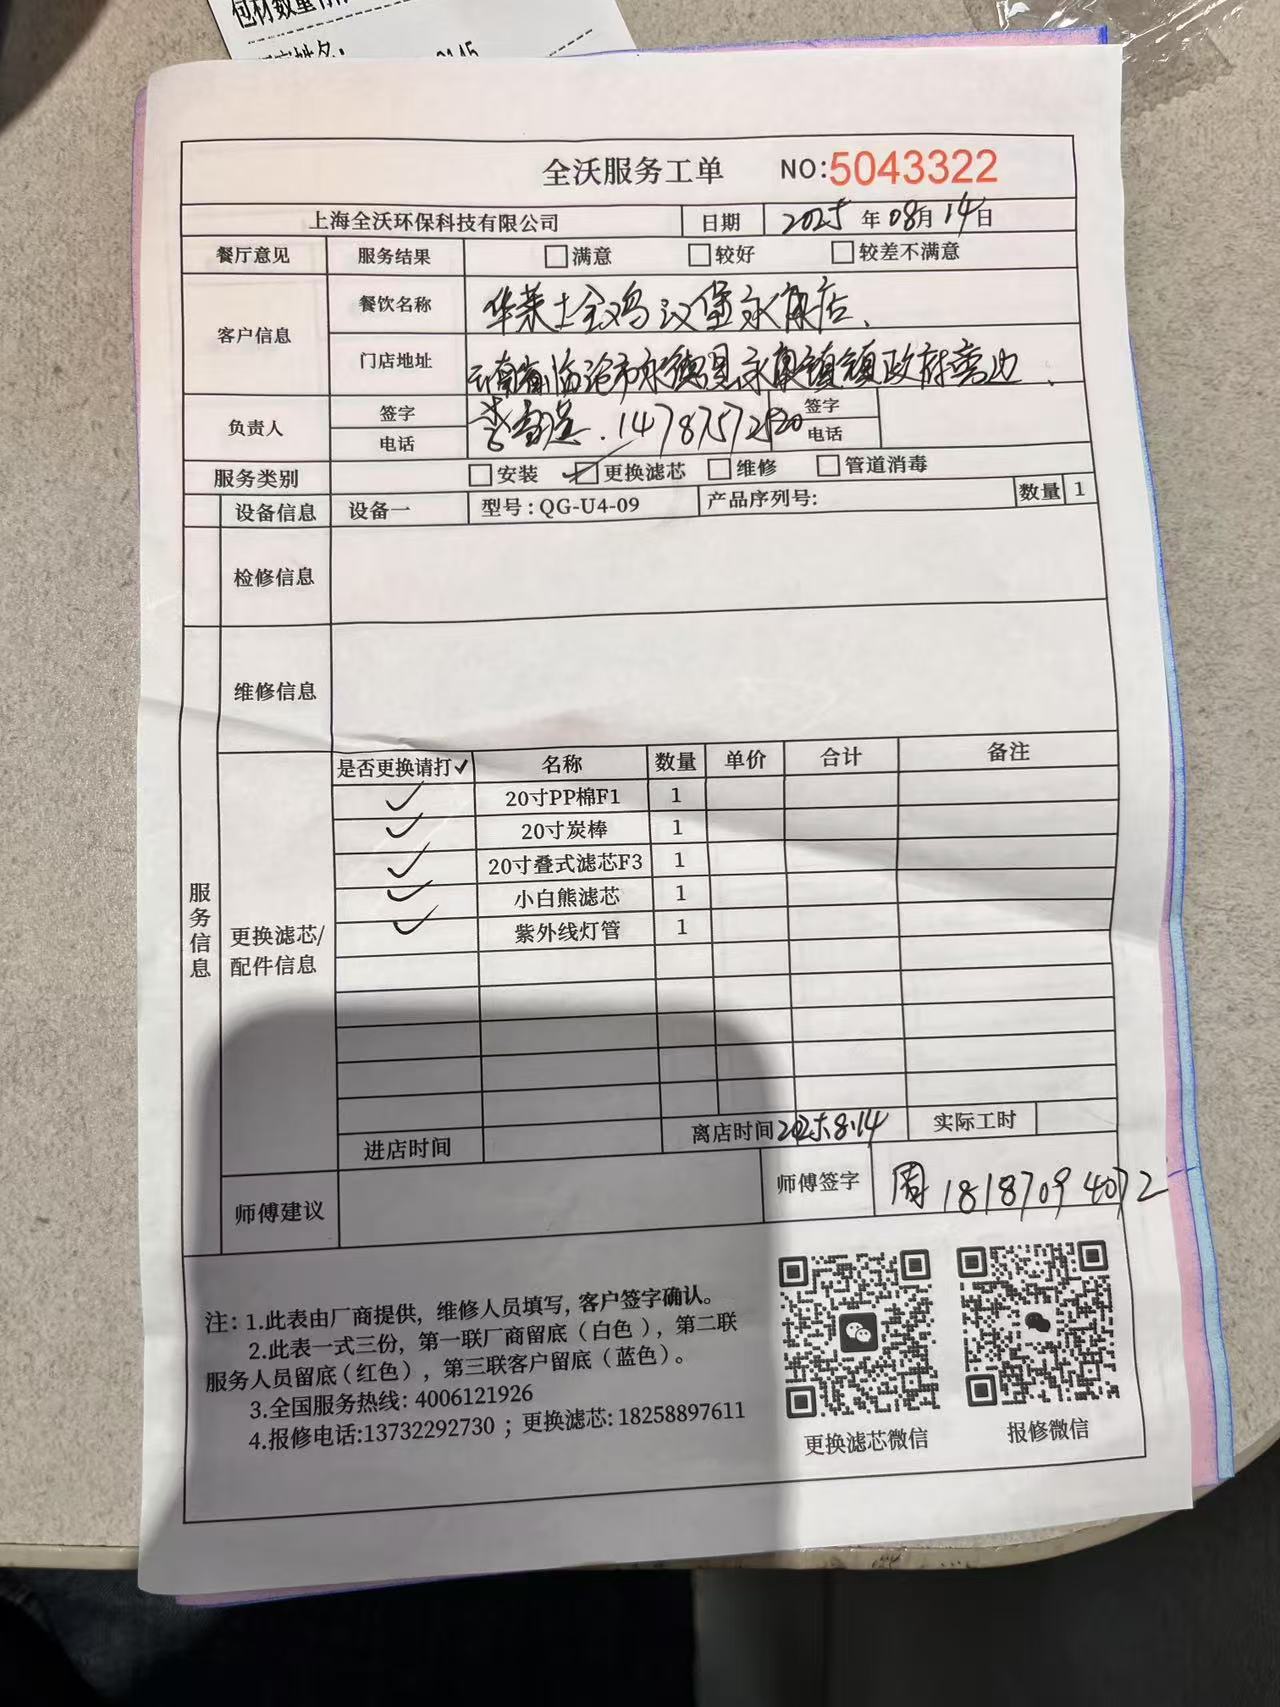 包材数量
全沃服务工单 NO:5043322
上海全沃环保科技有限公司 日期 2025年08月14日
餐厅意见 服务结果 □满意 □较好 □较差不满意
客户信息 餐饮名称 华莱士全鸡汉堡永康店、
门店地址 云南省临沧市永德县永康镇镇政府旁边、
负责人 签字 李 签字
电话 14787572520 电话
服务类别 □安装 ☑更换滤芯 □维修 □管道消毒
设备信息 设备一 型号：QG-U4-09 产品序列号: 数量 1
检修信息
维修信息
服务信息
更换滤芯/配件信息
是否更换请打✓ 名称 数量 单价 合计 备注
✓ 20寸PP棉F1 1
✓ 20寸炭棒 1
✓ 20寸叠式滤芯F3 1
✓ 小白熊滤芯 1
✓ 紫外线灯管 1
进店时间 离店时间 2025.8.14 实际工时
师傅建议 师傅签字 周 18187094072
注：1.此表由厂商提供，维修人员填写，客户签字确认。
2.此表一式三份，第一联厂商留底（白色），第二联
服务人员留底（红色），第三联客户留底（蓝色）。
3.全国服务热线: 4006121926
4.报修电话:13732292730 ；更换滤芯: 18258897611
更换滤芯微信 报修微信